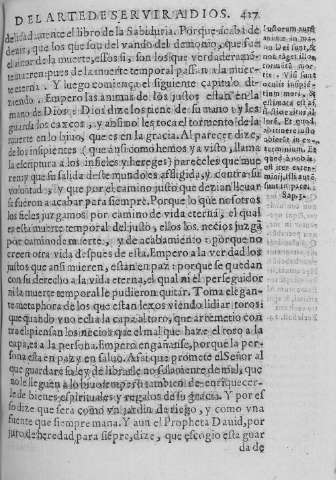 DEL ARTE DE SERVIR A DIOS. 427
el libro de la Sabiduria. Porque acaba de
dezir, que los que son del vando del demonio, que son
el autor de la muerte, essos si, son los que verdaderamē-
te mueren: pues de la muerte temporal passan a la muer-
te eterna. Y luego comiença el siguiente capitulo di-
ziendo. Empero las animas de los justos estan en la
mano de Dios: Dios dize los tiene de su mano y les
guarda los cascos, y assi no les toca el tormento de la
muerte o que es en la gracia. Al parecer dize,
de los insipientes (que ansi como hemos ya visto, llama
la escriptura a los infieles y hereges) pareceles que mue
ren y que su salida deste mundo es afligida, y contra su
voluntad, y que por el camino justo que dezian lleuar
se fueron a acabar para siempre. Porque lo que nosotros
los fieles juzgamos por camino de vida eterna, el qual
es esta muerte temporal del justo, ellos los necios juzgā
por camino de muerte, y de acabamiento: porque no
creen otra vida despues de esta. Empero a la verdad los
justos que ansi mueren, estan en paz: porque se quedan
con su derecho a la vida eterna, el qual ni el perseguidor
ni la muerte temporal le pudieron quitar. Toma elegan-
te metaphora de los que estan lexos viendo lidiar toros:
que quando vno echa la capa al toro, que arremetio con
tra el piensan los necios que el mal que haze el toro a la
capa, es a la persona. Empero engañanse, porque la per
sona esta en paz y en saluo. Assi que promete el Señor al
que guardare su ley de librarle no solamente de mal, que
no le lleguen a lo bueno tambien de enriquecer-
le de bienes espirituales y regalos de su gracia. Y por es
so dize que sera como vn jardin de riego, y como vna
fuente que siempre mana. Y aun el Propheta Dauid, por
juro de heredad para siēpre, dize, que escogio esta guar
da de
Iustorum autē
animæ in ma-
nu Dei sunt, &
non tanget illos
tormentū mor-
tis. Visi sunt
oculis insipiē-
tium mori, &
æstimata est af-
flictio, exitus il-
lorū. Et quod
itinere iusto
abierūt in ex-
terminium. Et
quod à nobis
est iter exter-
minij, illi autē
sunt in pace.
Sap. 3.